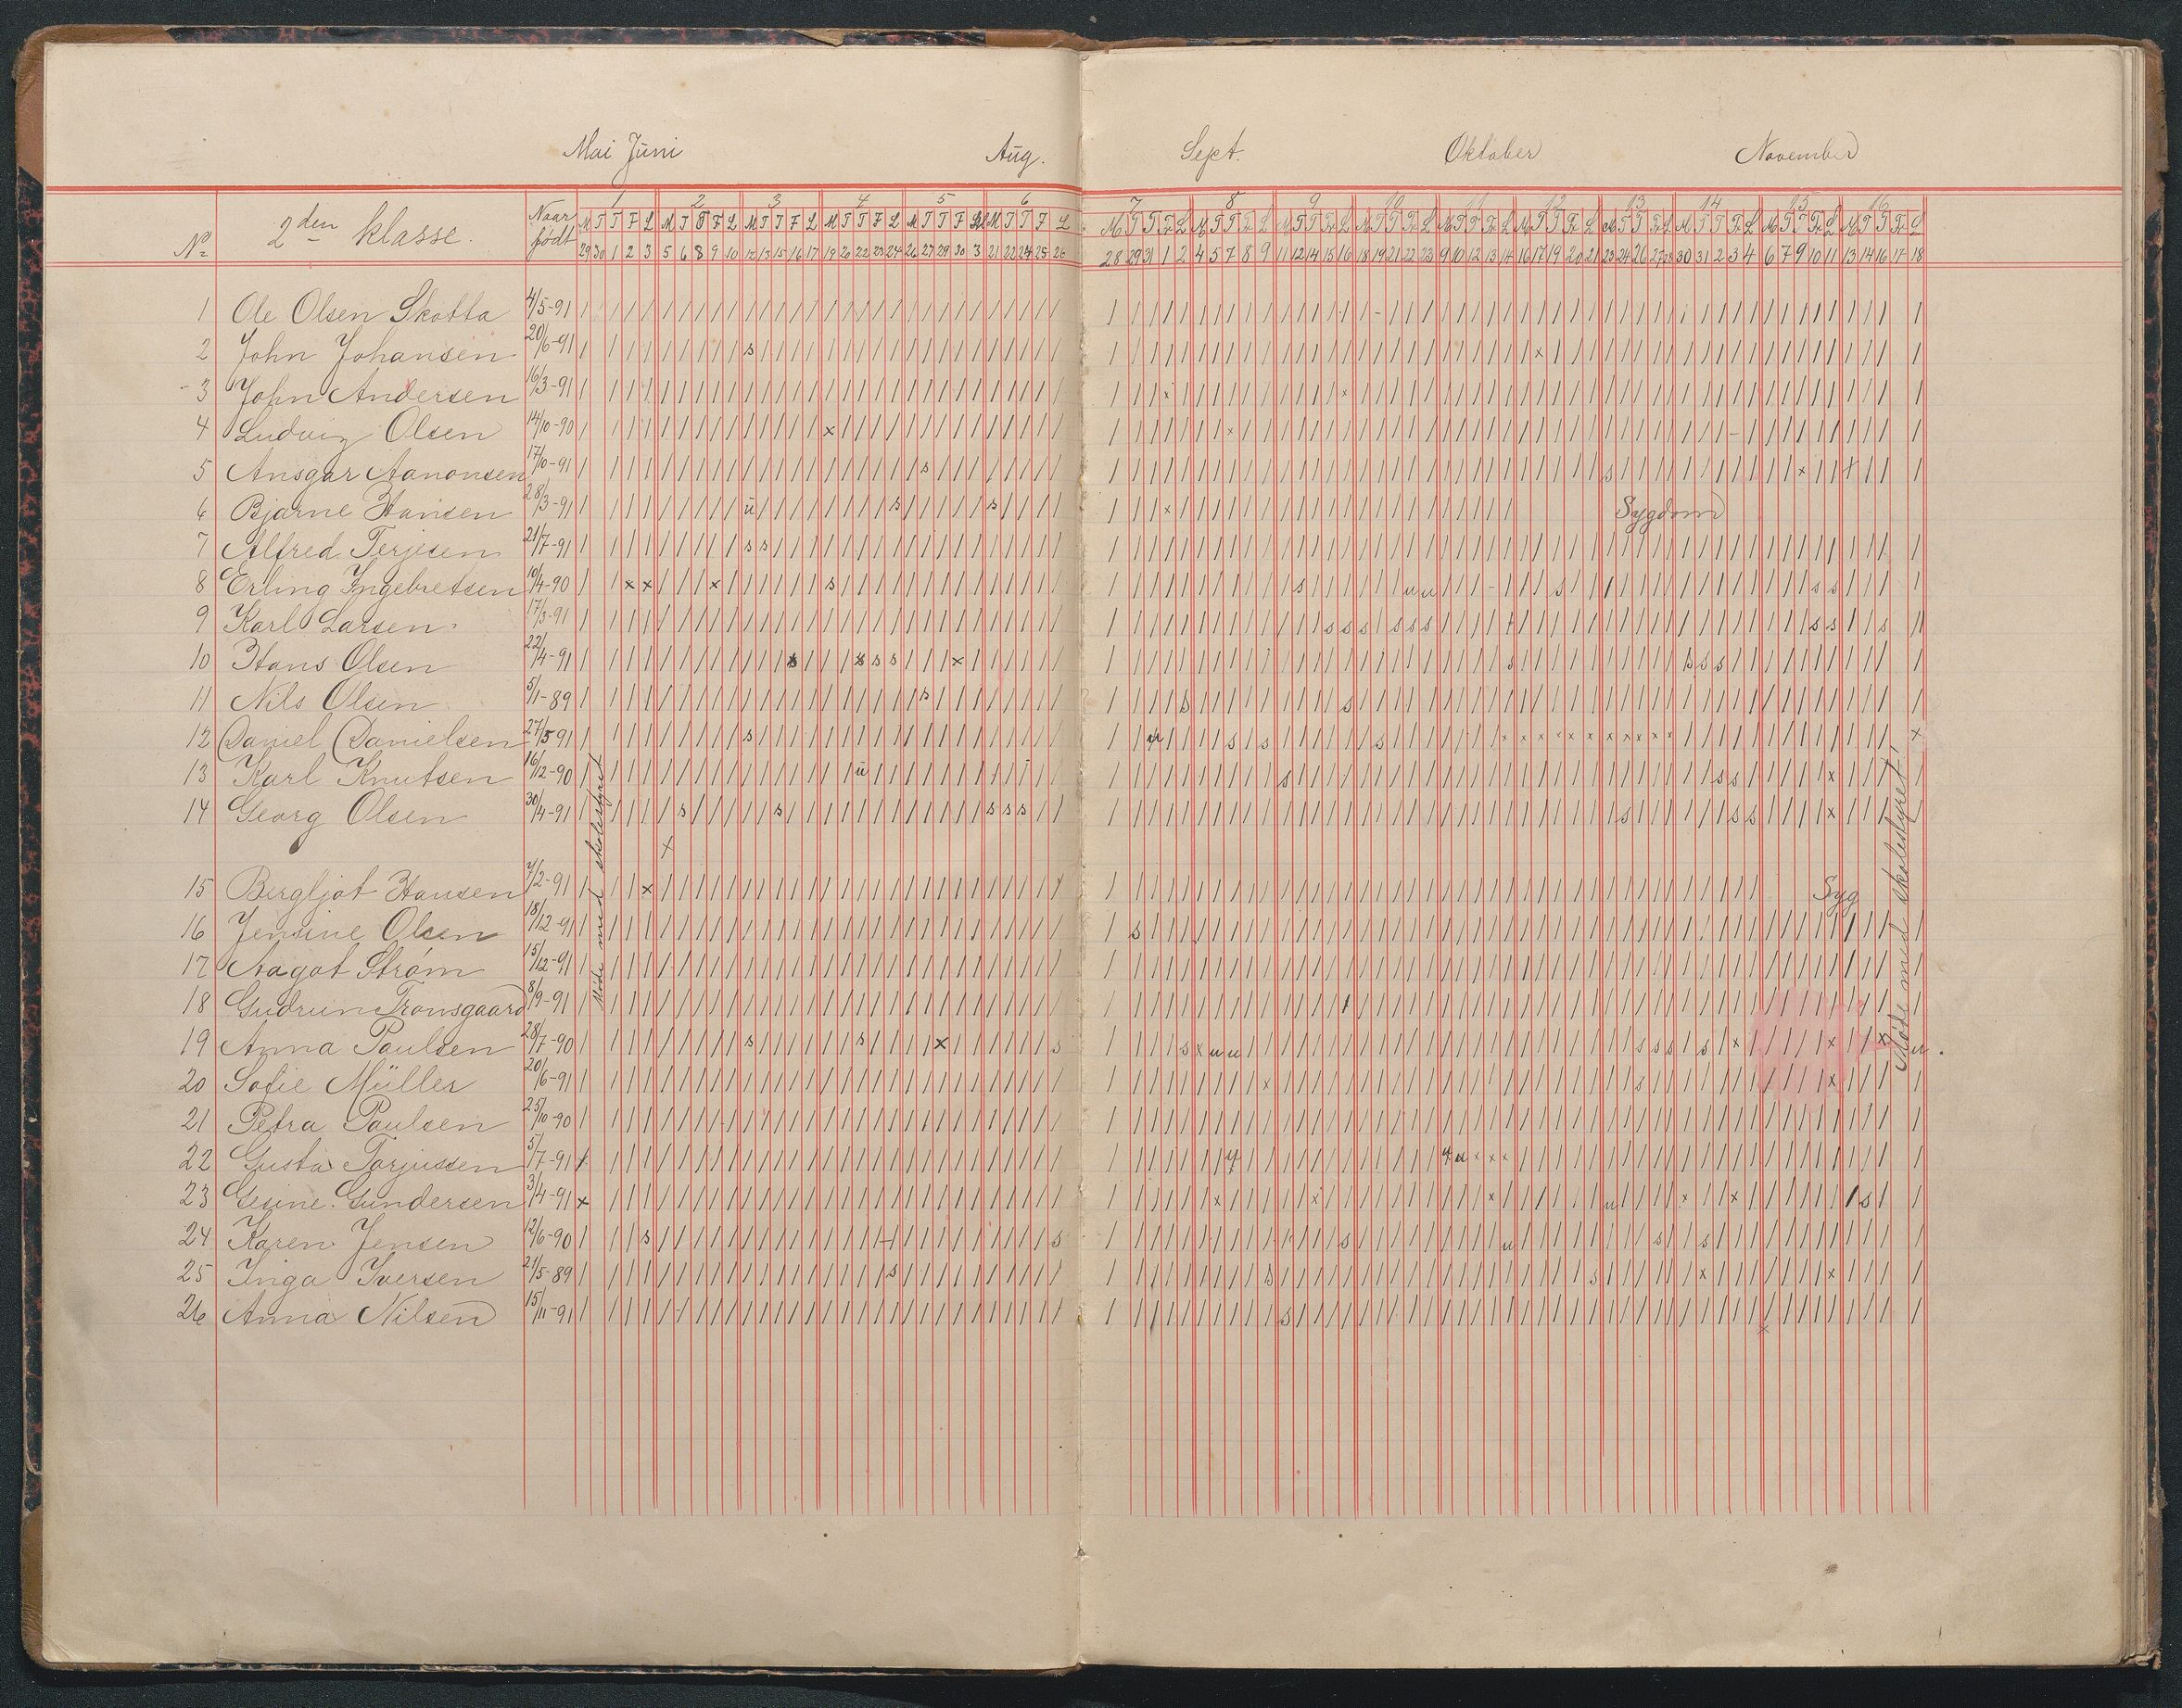 Mai Juni Aug. Sept. Oktober November
1 2 3 4 5 6 7 8 9 10 11 12 13 14 15 16
No 2den klasse. Naar født
M T T F L M T T F L M T T F L M T T F L M T T F M T T F L M T T Fr L M T T Fr L M T T Fr L M T T Fr L M T T Fr L M T T Fr L M T T Fr L M T T Fr L M T T Fr L M T T Fr L
29 30 1 2 3 5 6 8 9 10 12 13 15 16 17 19 20 22 23 24 26 27 29 30 3 21 22 24 25 26 28 29 31 1 2 4 5 7 8 9 11 12 14 15 16 18 19 21 22 23 9 10 12 13 14 16 17 19 20 21 23 24 26 27 28 30 31 2 3 4 6 7 9 10 11 13 14 16 17 18
1 Ole Olsen Skotta 4/5-91
2 John Johansen 20/6-91
3 John Andersen 16/3-91
4 Ludvig Olsen 14/10-90
5 Ansgar Aanonsen 17/10-91
6 Bjarne Hansen 28/3-91 Sygdom
7 Alfred Terjesen 21/7-91
8 Erling Ingebretsen 10/4-90
9 Karl Larsen 17/3-91
10 Hans Olsen 22/4-91
11 Nils Olsen 5/1-89
12 Daniel Danielsen 27/5 91
13 Karl Knutsen 16/12-90
14 Georg Olsen 30/4-91
Møde med skolestyret
15 Bergljot Hansen 7/2-91 Syg
16 Jensine Olsen 18/12-91
17 Aagot Strøm 15/12-91
18 Gudrun Tronsgaard 8/9-91
19 Anna Paulsen 28/7-90
20 Sofie Müller 20/6-91
21 Petra Paulsen 25/10-90
22 Gusta Torjussen 5/7-91
23 Gesine Gundersen 3/4-91
24 Karen Jensen 12/6-90
25 Inga Iversen 21/5-89
26 Anna Nilsen 15/11-91
Møde med skolestyret!